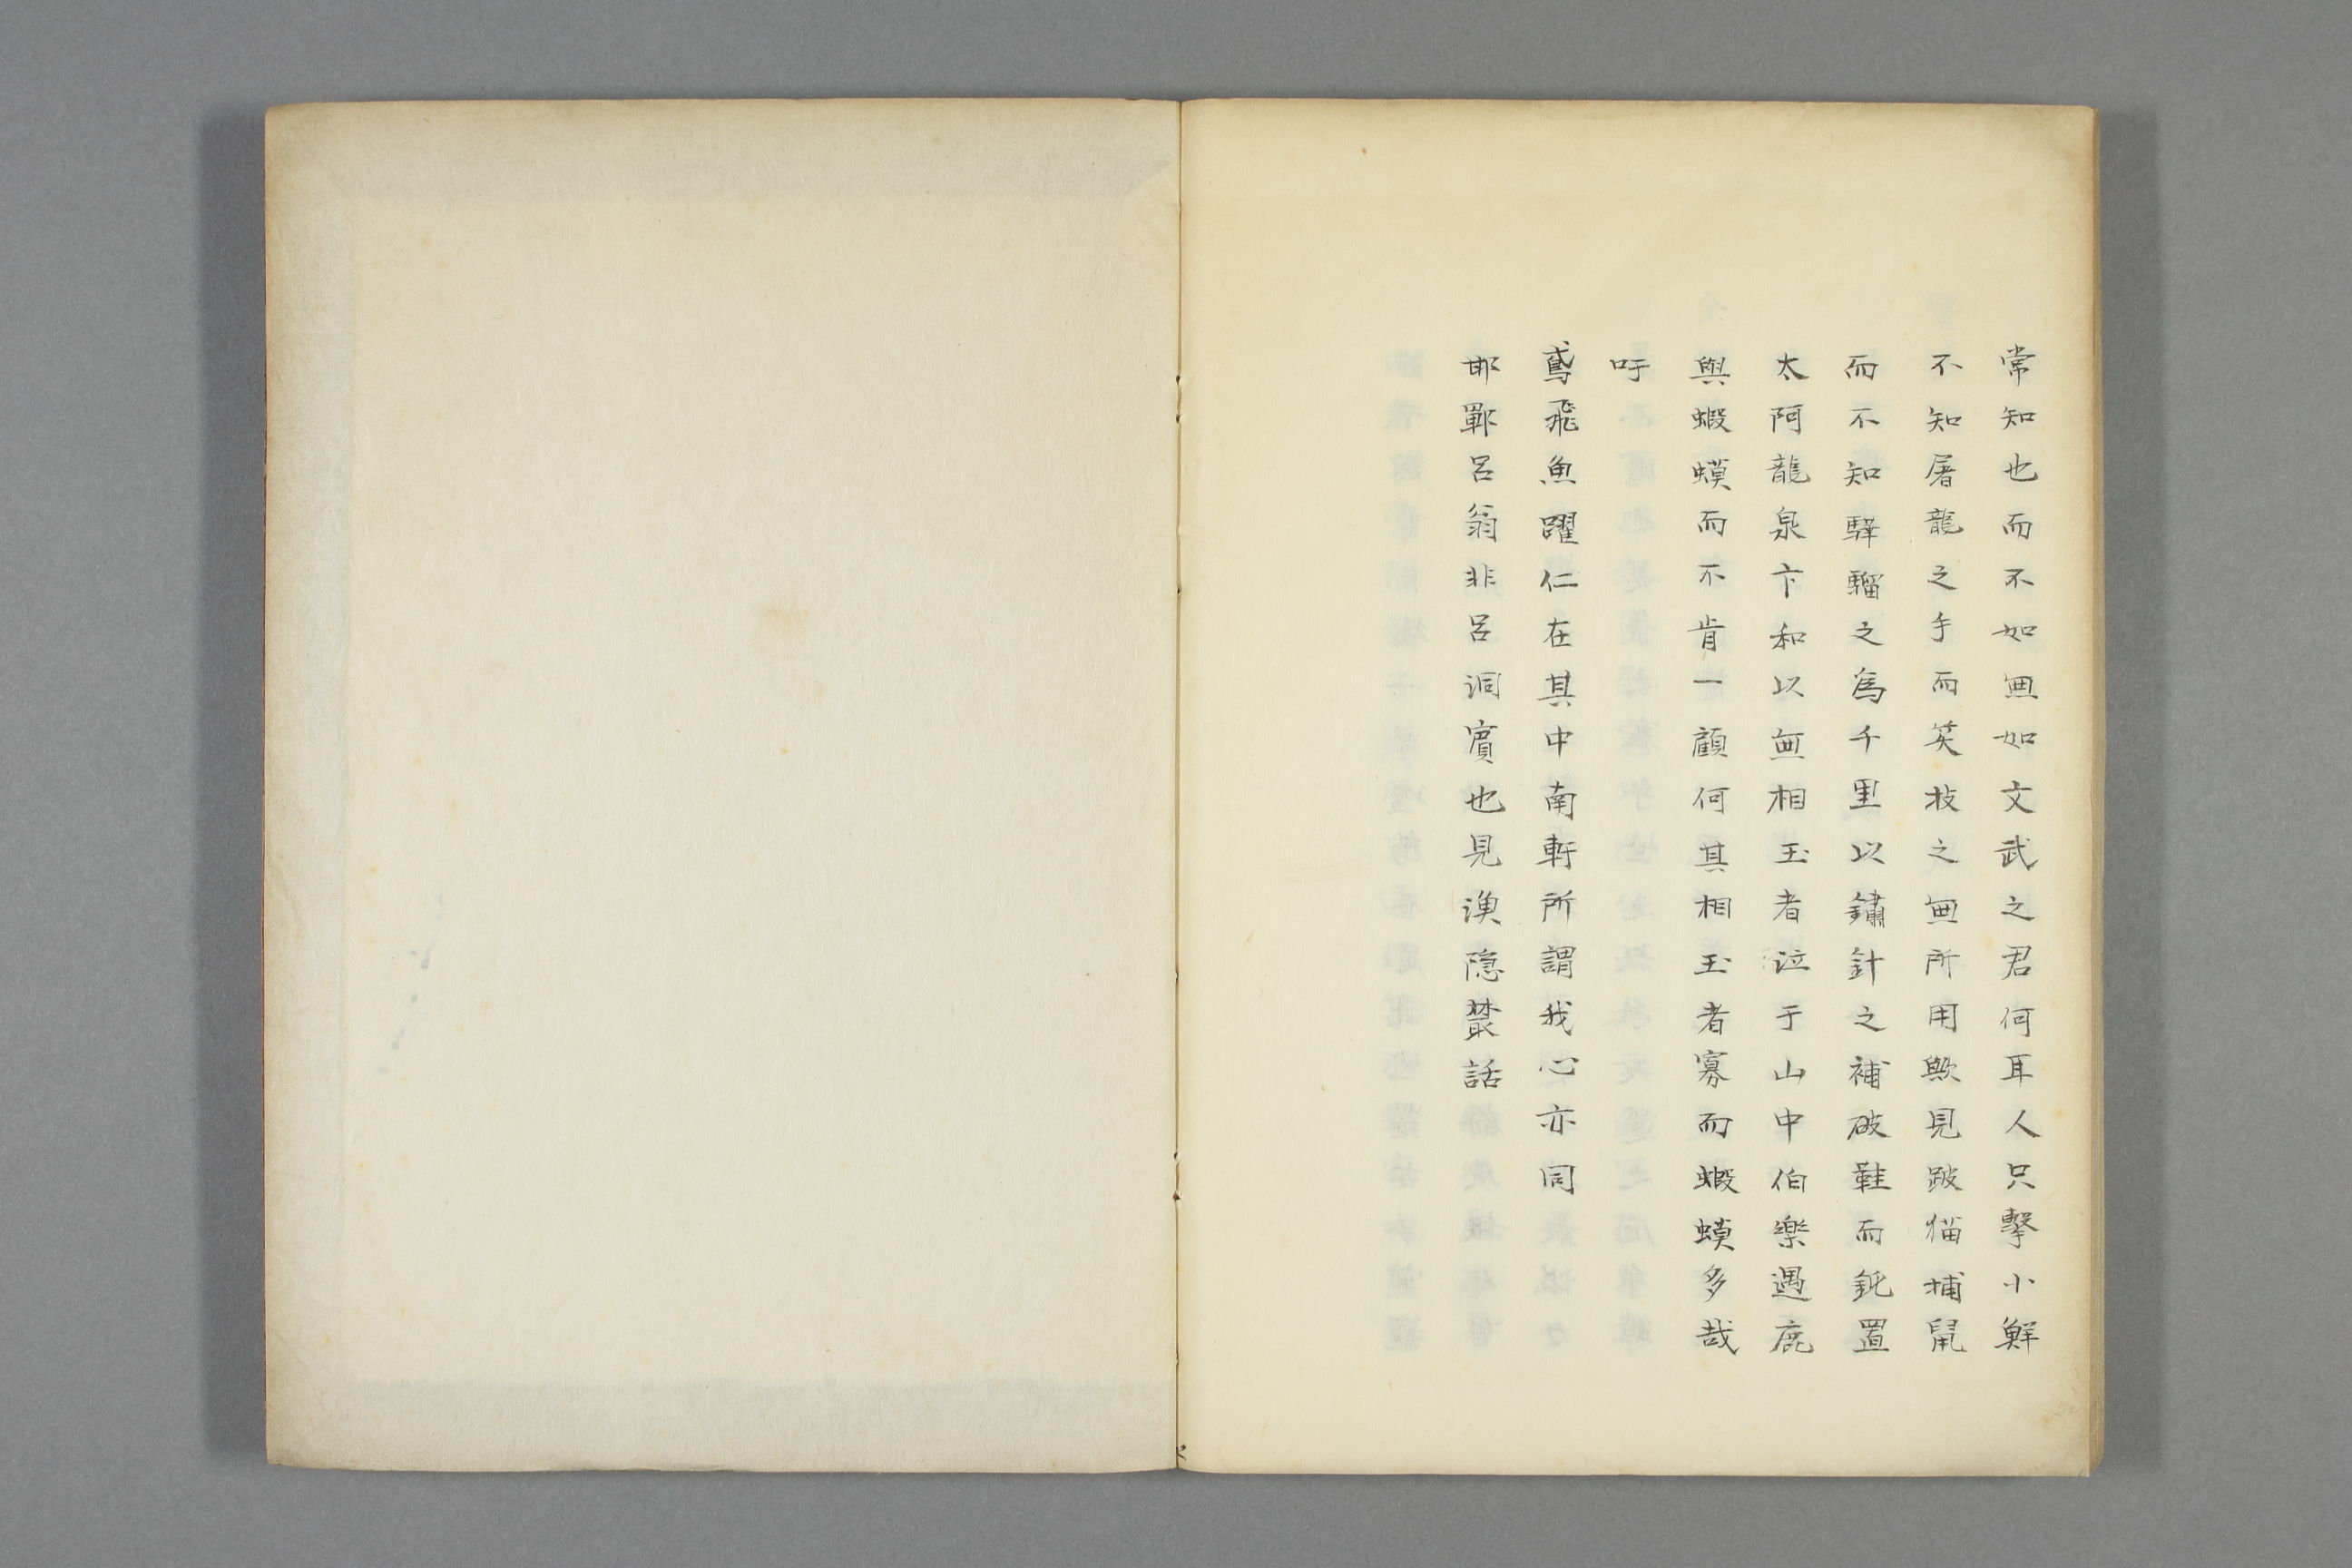 常知也而不如無如文武之君何耳人只擊小鮮
不知屠龍之手而笑技之無所用歟見跛猫捕鼠
而不知驊騮之為千里以鏽針之補破鞋而鈍置
太阿龍泉卞和以無相玉者泣于山中伯樂遇鹿
與蝦蟆而不肯一顧何其相玉者寡而蝦蟆多哉
吁
鳶飛魚躍仁在其中南軒所謂我心亦同
邯鄲呂翁非呂洞賓也見漁隠叢話